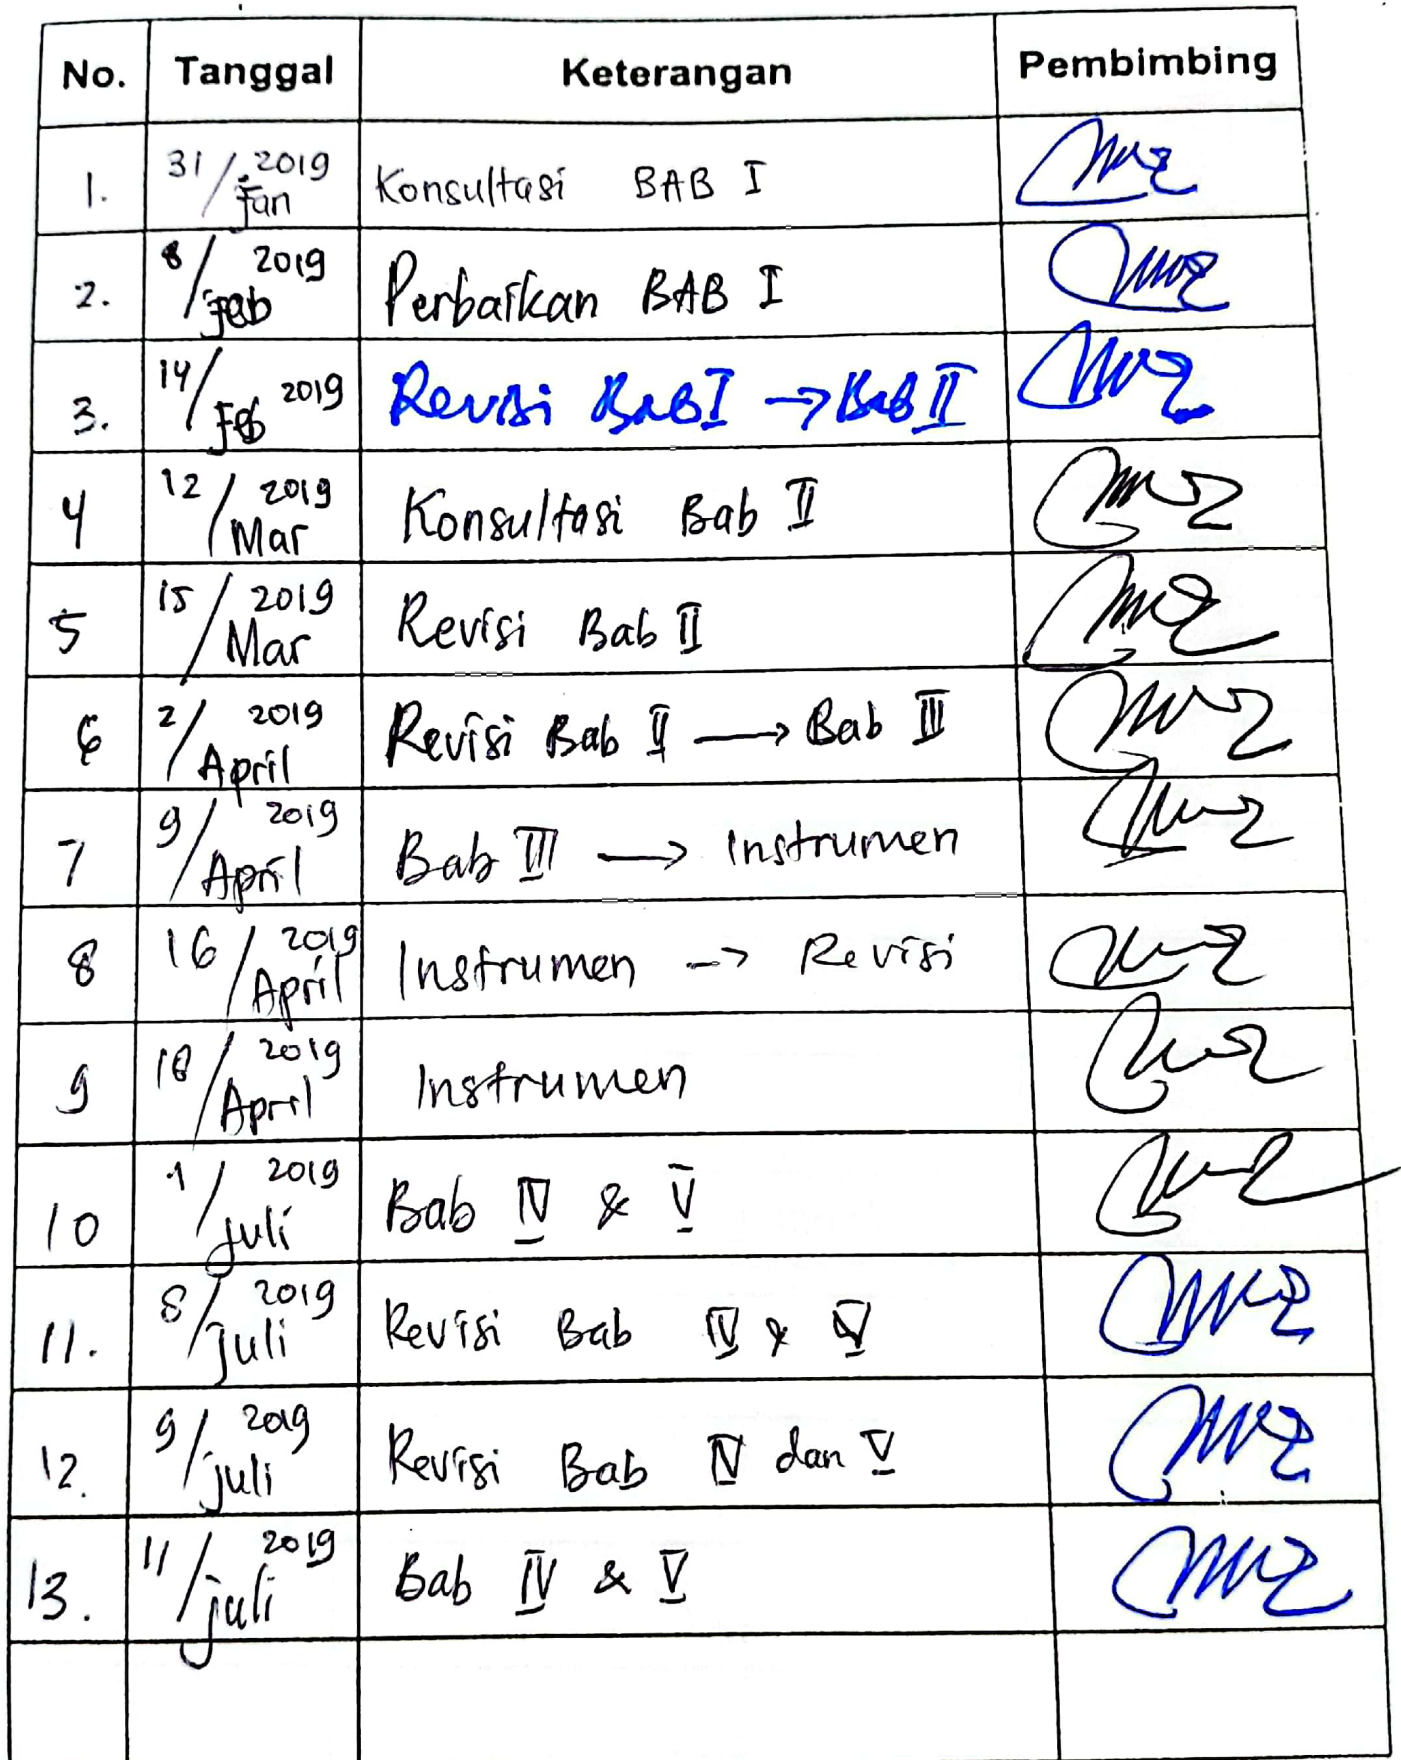 No. Tanggal Keterangan Pembimbing
1. 31/Jan 2019 Konsultasi BAB I
2. 8/feb 2019 Perbaikan BAB I
3. 14/Feb 2019 Revisi Bab I → Bab II
4 12/Mar 2019 Konsultasi Bab II
5 15/Mar 2019 Revisi Bab II
6 2/April 2019 Revisi Bab II → Bab III
7 9/April 2019 Bab III → Instrumen
8 16/April 2019 Instrumen → Revisi
9 18/April 2019 Instrumen
10 1/juli 2019 Bab IV & V
11. 8/juli 2019 Revisi Bab IV & V
12. 9/juli 2019 Revisi Bab IV dan V
13. 11/juli 2019 Bab IV & V